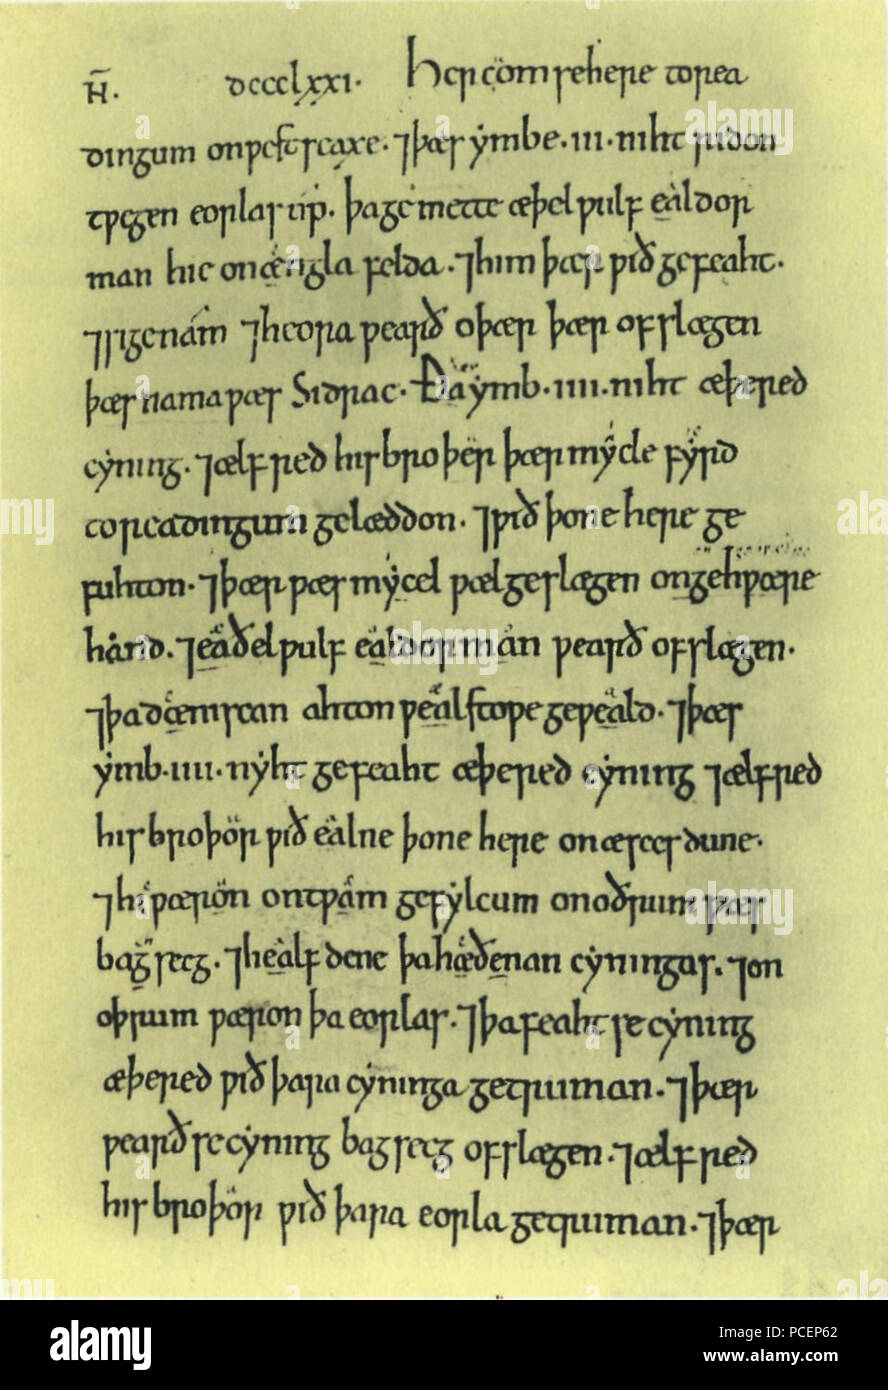 N̄. DCCCLXXI. Her cöm se here to rea
dingum on ƿestseaxe. ⁊ þæs ẏmbe .III. niht ridon
tƿegen eorlas úṗ. þa gemette æþelƿulf eàldor
man hie on ængla felda. ⁊ him þær ƿið gefeaht.
⁊ sige nám ⁊ heora ƿearð oþær þær ofslægen
þæs nama ƿæs Sidrac. Ða ẏmb .IIII. niht æþered
cẏning. ⁊ ælfred his broþër þær mẏcle fẏrd
to readingum gelæddon. ⁊ ƿið þone here ge
fuhton. ⁊ þær ƿæs mẏcel ƿæl geslægen on gehƿæþre
hånd. ⁊ eäðelƿulf eäldorman ƿearð ofslægen.
⁊ þa dæniscan ahton ƿeälstoƿe geƿeäld. ⁊ þæs
ẏmb .IIII. nẏht gefeaht æþered cẏning ⁊ ælfred
his broþör ƿið eàlne þone here on æscesdune.
⁊ hi ƿæron on tƿäm gefẏlcum on oðrum ƿæs
bagsecg. ⁊ heàlfdene þa hæðenan cẏningas. ⁊ on
oþrum ƿæron þa eorlas. ⁊ þa feaht se cẏning
æþered ƿið þara cẏninga getruman. ⁊ þær
ƿearð se cẏning bagsecg ofslægen. ⁊ ælfred
his broþör ƿið þara eorla getruman. ⁊ þær
alamy
Image ID: PCEP62
www.alamy.com